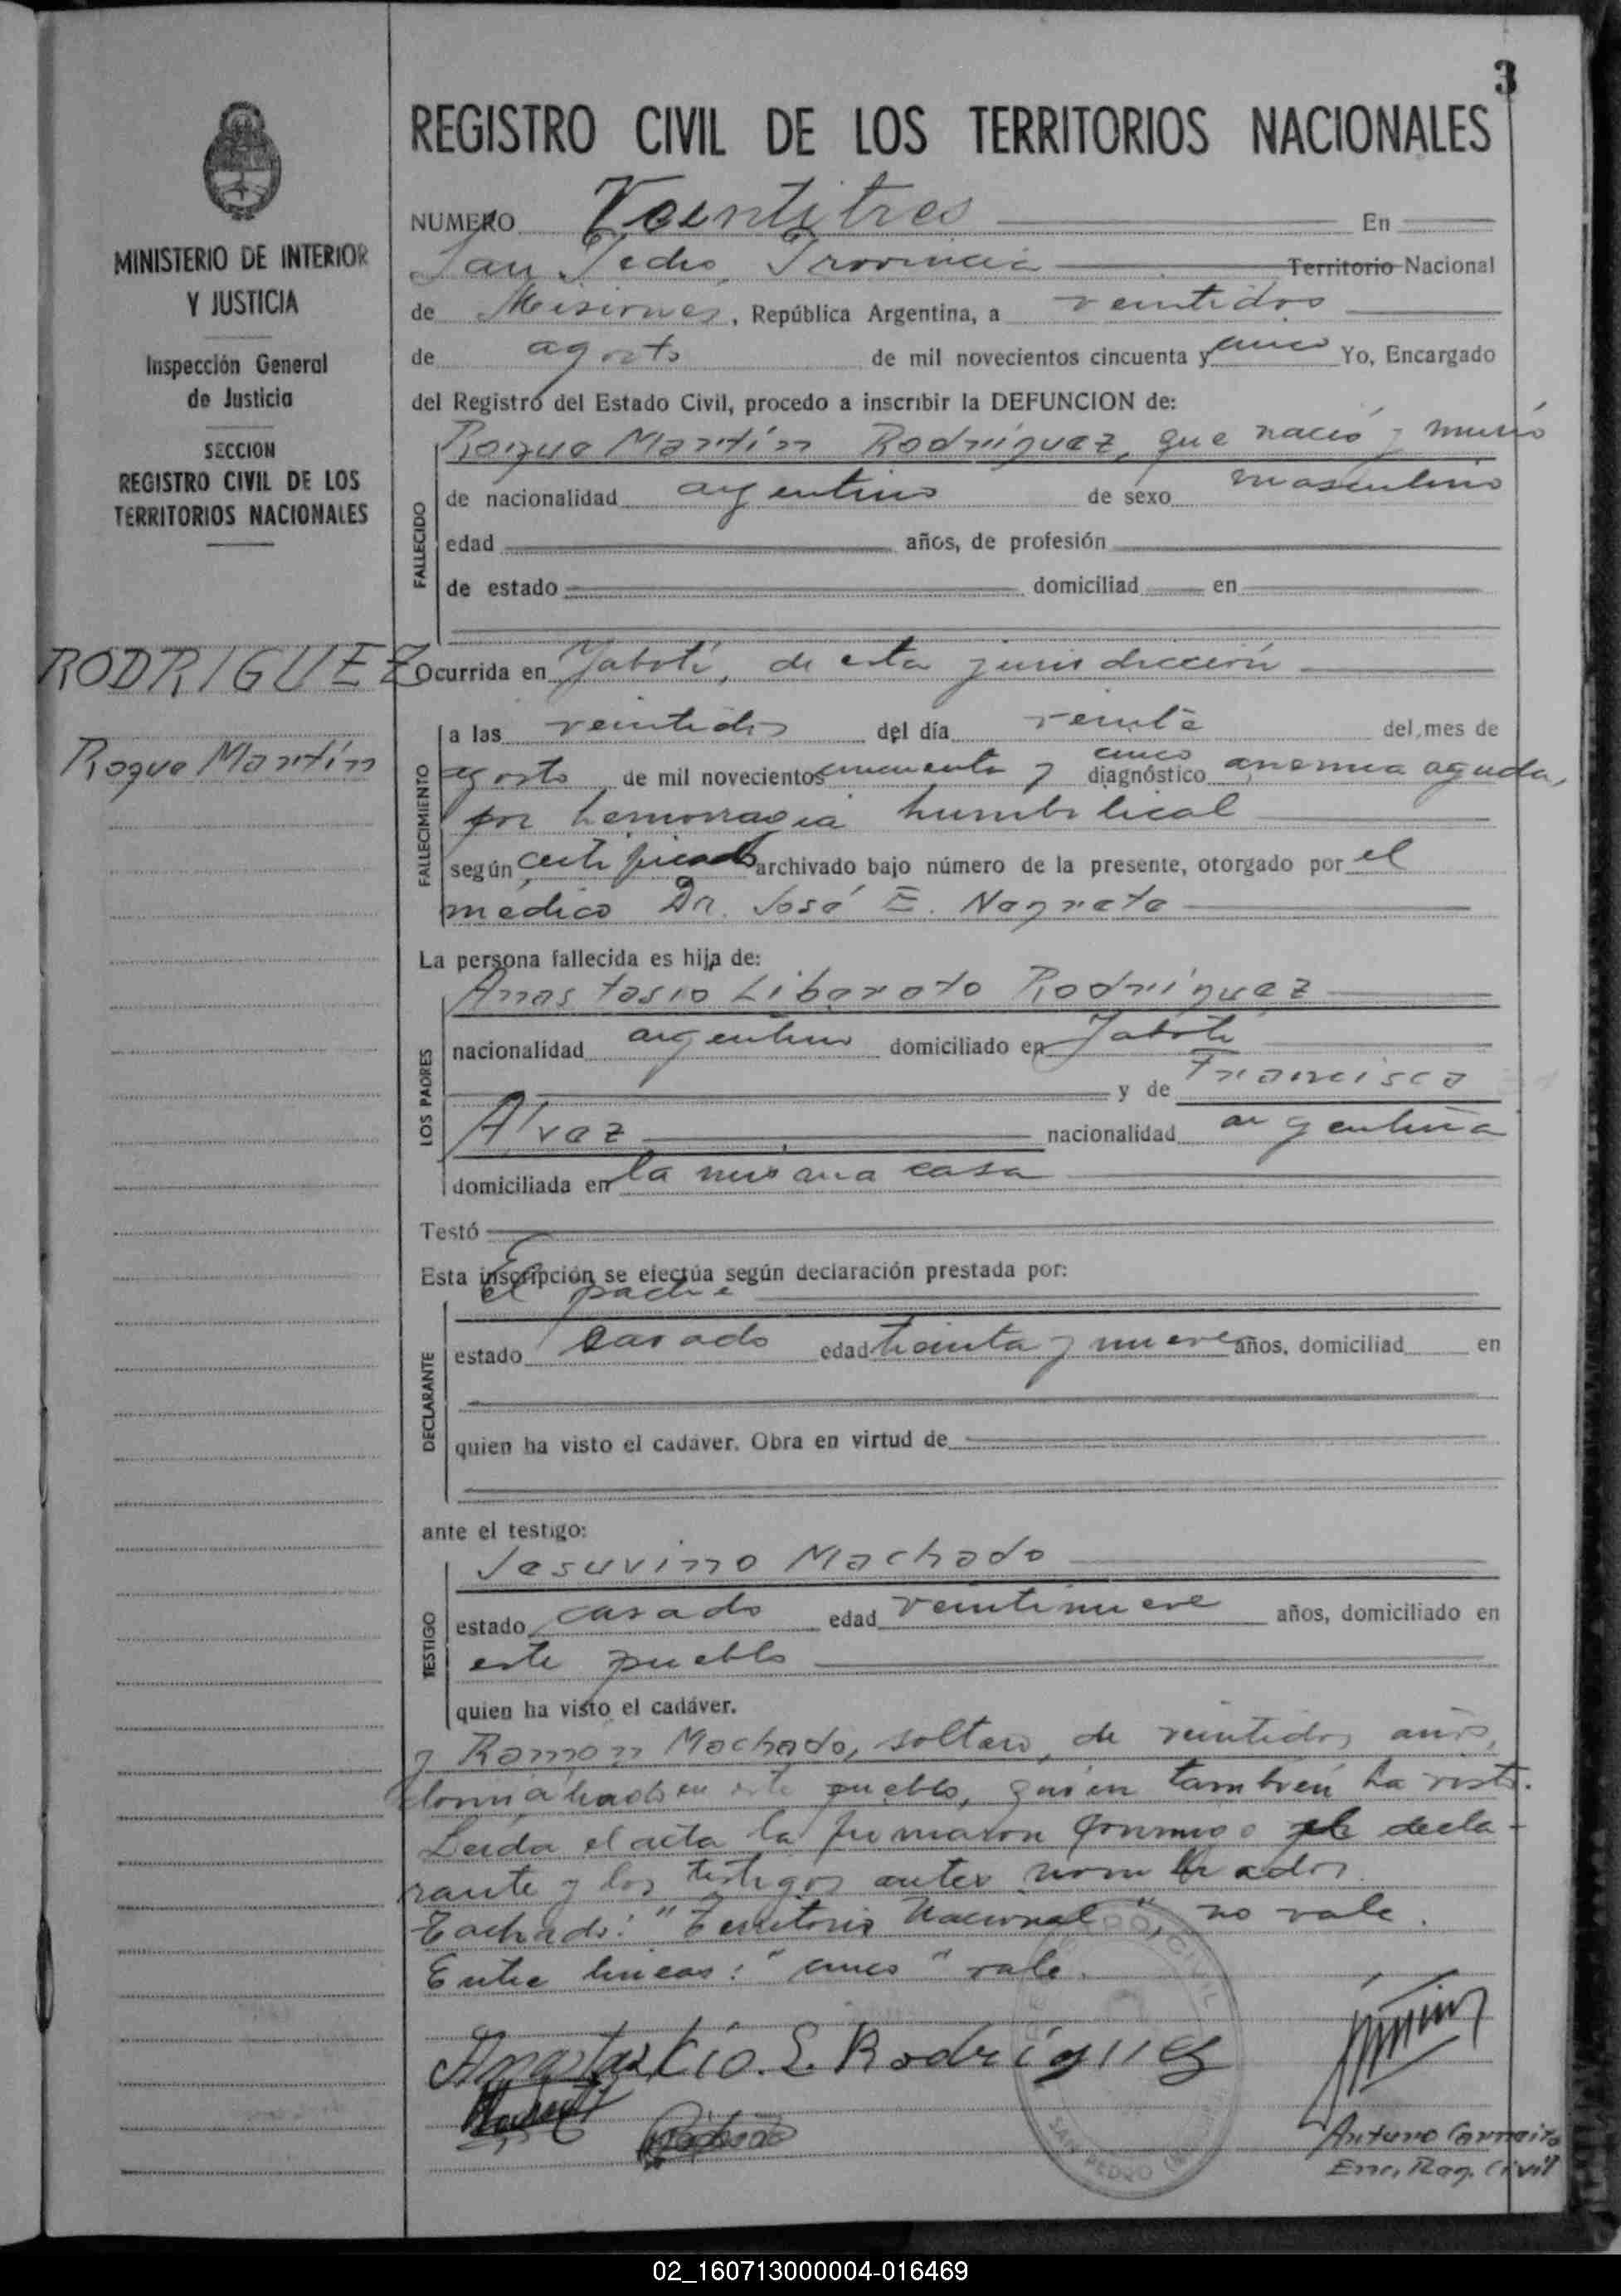 3
REGISTRO CIVIL DE LOS TERRITORIOS NACIONALES
MINISTERIO DE INTERIOR
Y JUSTICIA
Inspección General
de Justicia
SECCION
REGISTRO CIVIL DE LOS
TERRITORIOS NACIONALES
RODRIGUEZ
Roque Martín
NUMERO Veintitres En
San Pedro, Provincia Territorio Nacional
de Misiones, República Argentina, a veintidos
de agosto de mil novecientos cincuenta y cinco Yo, Encargado
del Registro del Estado Civil, procedo a inscribir la DEFUNCION de:
FALLECIDO
Roque Martín Rodríguez, que nació y murió
de nacionalidad argentino de sexo masculino
edad años, de profesión
de estado domiciliad en
Ocurrida en Yabotí, de esta jurisdicción
FALLECIMIENTO
a las veintidos del día veinte del mes de
agosto de mil novecientos cincuenta y cinco diagnóstico anemia aguda,
por hemorragia humbilical
según certificado archivado bajo número de la presente, otorgado por el
médico Dr. José E. Negrete
La persona fallecida es hija de:
LOS PADRES
Anastasio Liberato Rodríguez
nacionalidad argentino domiciliado en Yabotí
y de Francisca
Alvez nacionalidad argentina
domiciliada en la misma casa
Testó
Esta inscripción se efectúa según declaración prestada por:
DECLARANTE
El padre
estado casado edad treinta y nueve años, domiciliad en
quien ha visto el cadáver. Obra en virtud de
ante el testigo:
TESTIGO
Jesuvino Machado
estado casado edad veintinueve años, domiciliado en
este pueblo
quien ha visto el cadáver.
y Ramon Machado, soltero, de veintidos años,
domiciliado en este pueblo, quien también ha visto.
Leida el acta la firmaron conmigo el decla-
rante y los testigos antes nombrados.
Tachado: "Territorio Nacional", no vale.
Entre lineas: "cinco" vale.
Anastacio. L. Rodríguez
CIVIL
SAN PEDRO
Arturo Carneiro
Enc. Reg. Civil
02_160713000004-016469